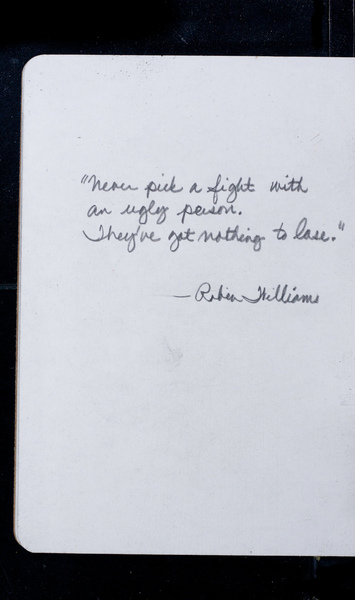 "Never pick a fight with
an ugly person.
They've got nothing to lose."
— Robin Williams